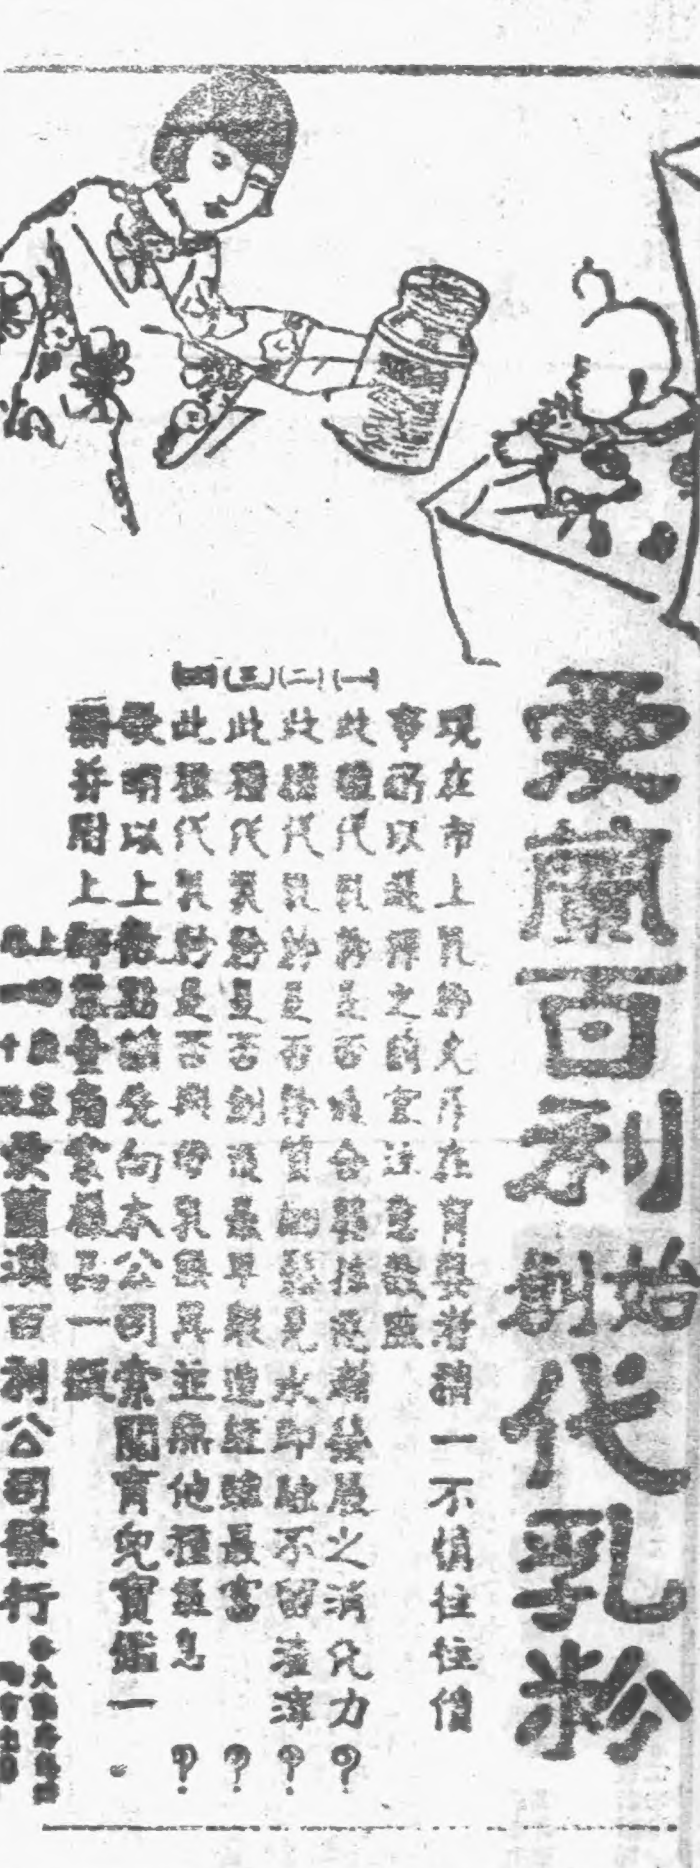 愛蘭百利
創始
代乳粉
現在市上乳粉充斥在育嬰者一不慎往往僨
事所以選擇之時宜注意數點
(一)此種代乳粉是否適合嬰孩逐漸發展之消化力?
(二)此種代乳粉是否粉質細鬆見水即融不留渣滓?
(三)此種代乳粉是否創造最早製造經驗最富?
(四)此種代乳粉是否與母乳無異並無他種氣息?
欲明以上數點請先向本公司索閱育兒寶鑑一
並附上郵票壹角索樣品一
上海
愛蘭漢百利公司發行